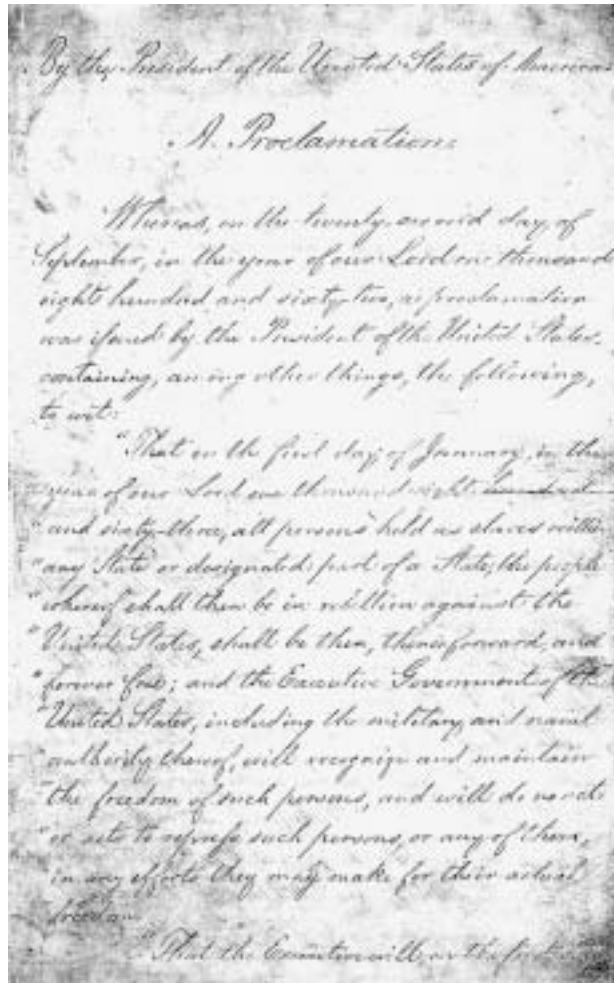 By the President of the United States of America:
A Proclamation.
Whereas, on the twenty-second day of
September, in the year of our Lord one thousand
eight hundred and sixty-two, a proclamation
was issued by the President of the United States,
containing, among other things, the following,
to wit:
"That on the first day of January, in the
"year of our Lord one thousand eight hundred
"and sixty-three, all persons held as slaves within
"any State or designated part of a State, the people
"whereof shall then be in rebellion against the
"United States, shall be then, thenceforward, and
"forever free; and the Executive Government of the
"United States, including the military and naval
"authority thereof, will recognize and maintain
"the freedom of such persons, and will do no act
"or acts to repress such persons, or any of them,
"in any efforts they may make for their actual
"freedom.
"That the Executive will, on the first